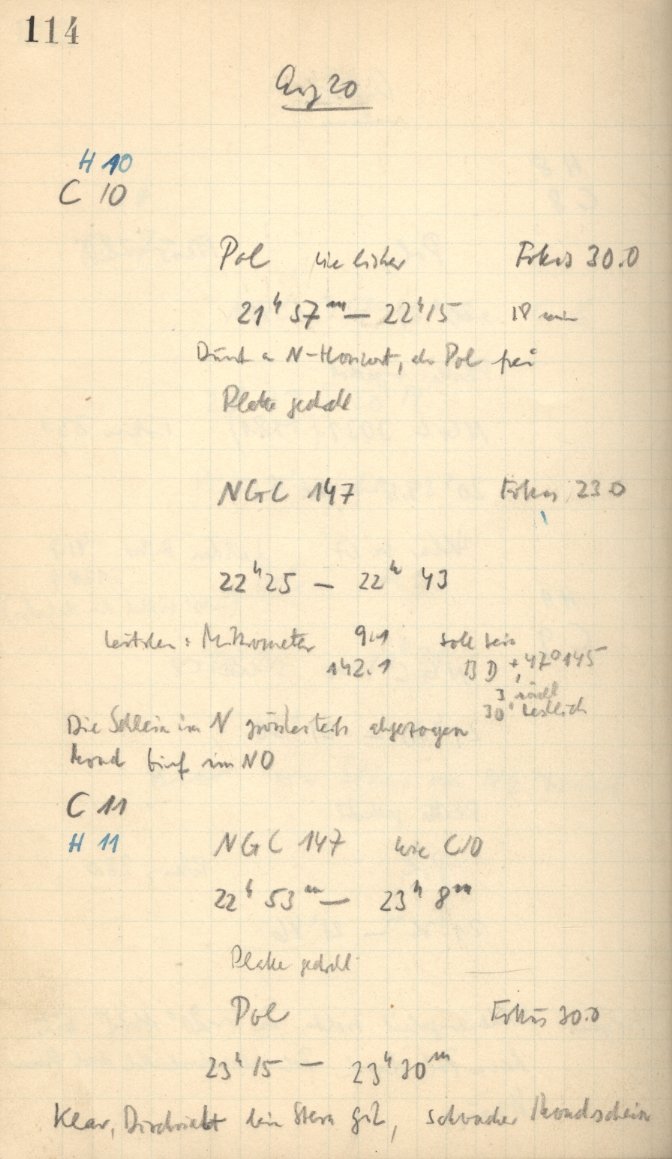 114
Aug 20
H 10
C 10
Pol wie bisher Fokus 30.0
21ʰ 57ᵐ — 22ʰ15 18 min
Dunst a N-Horizont, aber Pol frei
Platte gedreht
NGC 147 Fokus 23.0
22ʰ25 — 22ʰ 43
Leitstern : Mikrometer 9.1 soll sein
142.1 BD +47°145
3' nördl
30' westlich
Die Schleier im N grösstenteils abgezogen
Mond tief im NO
C 11
H 11 NGC 147 wie C10
22ʰ 53ᵐ — 23ʰ 8ᵐ
Platte gedreht
Pol Fokus 30.0
23ʰ15 — 23ʰ30ᵐ
Klar, Durchsicht Stern gut, schwacher Mondschein